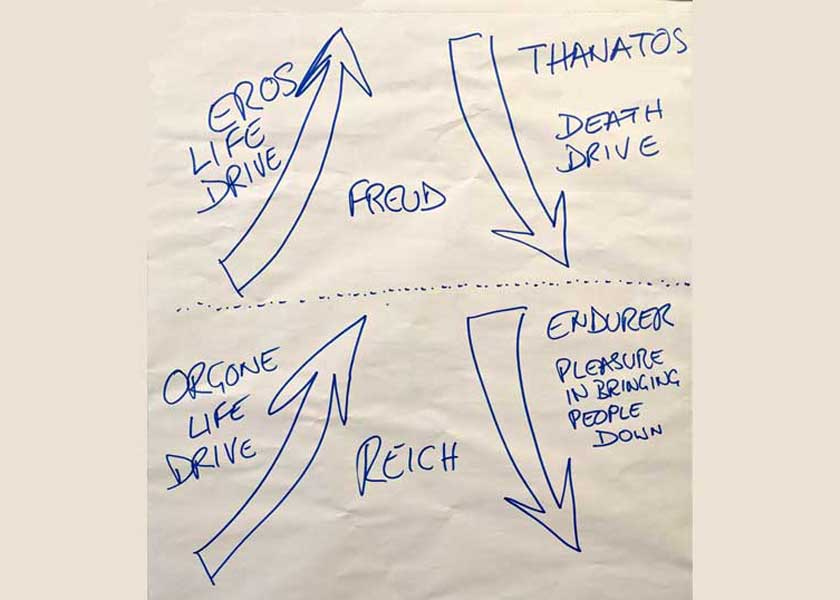 EROS
LIFE
DRIVE
FREUD
THANATOS
DEATH
DRIVE
ORGONE
LIFE
DRIVE
REICH
ENDURER
PLEASURE
IN BRINGING
PEOPLE
DOWN